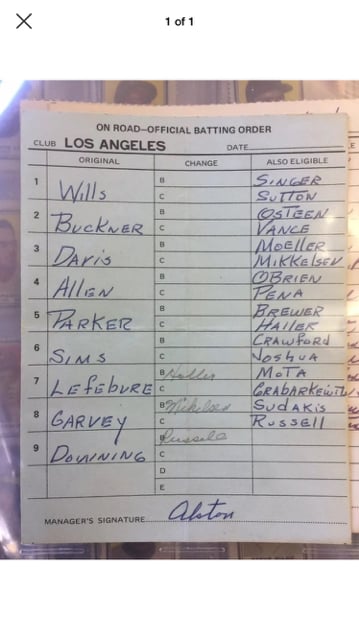 1 of 1
ON ROAD—OFFICIAL BATTING ORDER
CLUB LOS ANGELES DATE
ORIGINAL CHANGE ALSO ELIGIBLE
1 Wills B SINGER
C SUTTON
2 BUCKNER B OSTEEN
C VANCE
3 DAVIS B MOELLER
C MIKKELSEN
4 ALLEN B O'BRIEN
C PENA
5 PARKER B BREWER
C HALLER
6 SIMS B CRAWFORD
C JOSHUA
7 LEFEBVRE B Haller MOTA
C GRABARKEWITZ
8 GARVEY B Mikelsen SUDAKIS
C RUSSELL
9 DOWNING B Russell
C
D
E
MANAGER'S SIGNATURE Alston